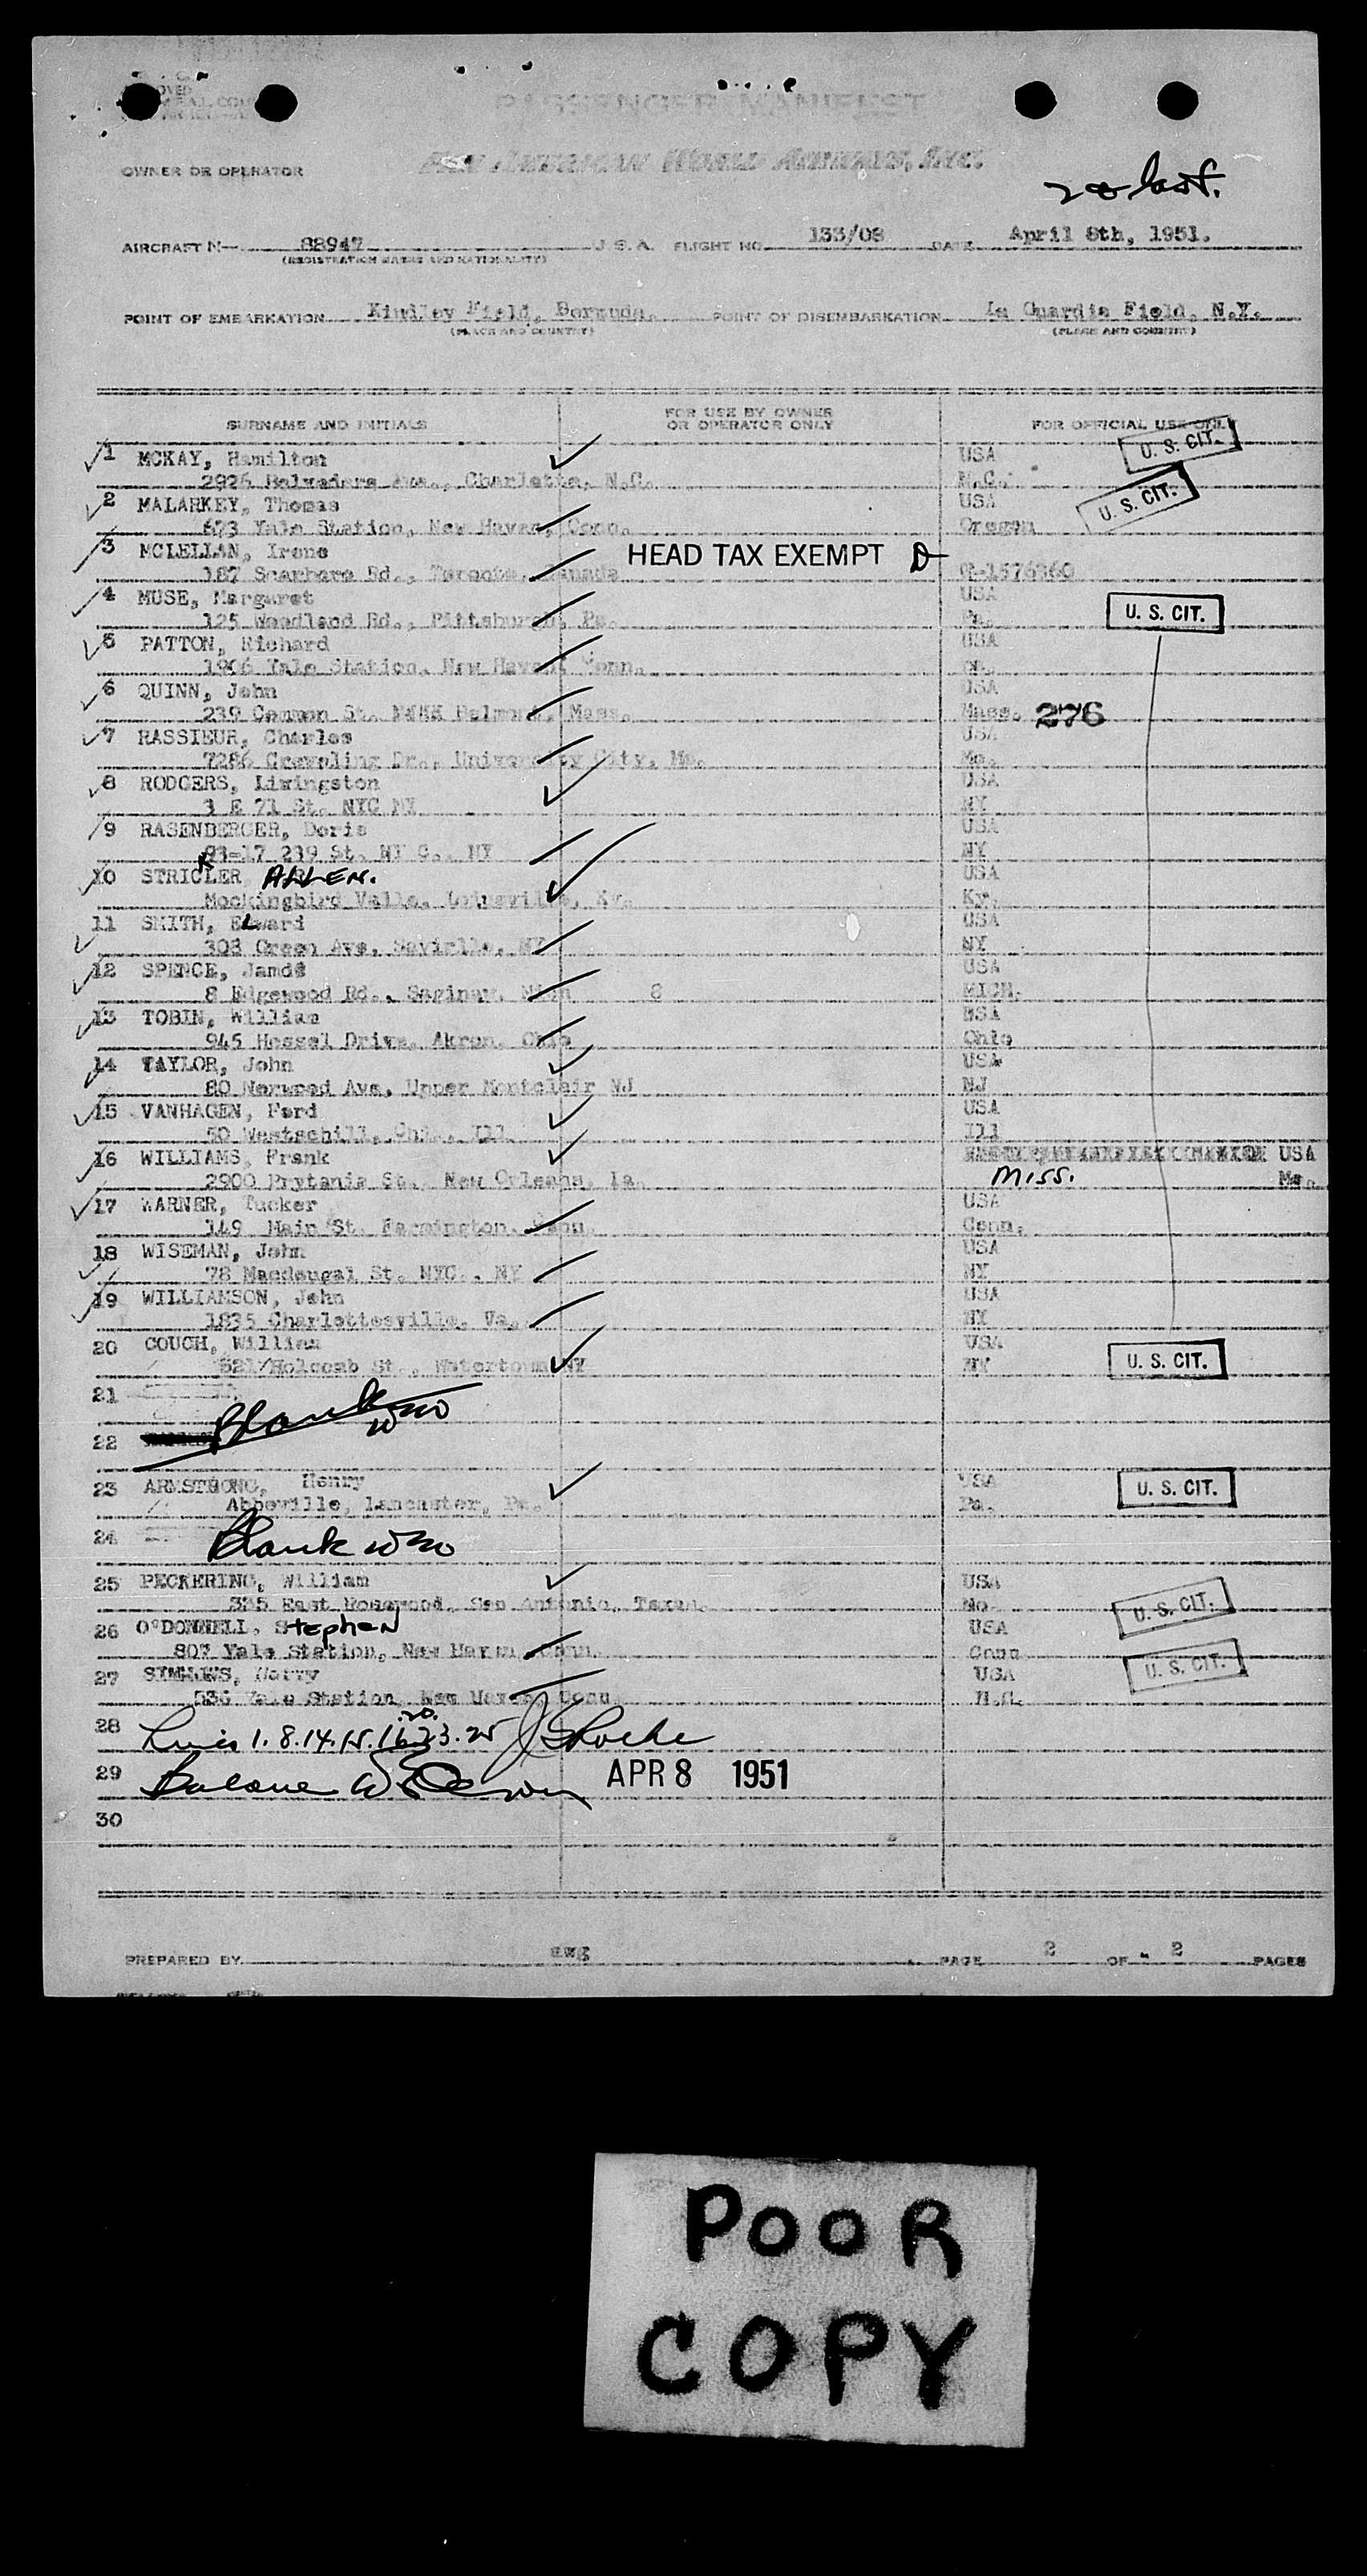 PASSENGER MANIFEST
PAN AMERICAN WORLD AIRWAYS, INC.
OWNER OR OPERATOR
AIRCRAFT N— 88947 U S.A. FLIGHT NO. 133/08 DATE April 8th, 1951.
(REGISTRATION MARKS AND NATIONALITY)
POINT OF EMBARKATION Kindley Field, Bermuda. POINT OF DISEMBARKATION La Guardia Field, N.Y.
(PLACE AND COUNTRY) (PLACE AND COUNTRY)
SURNAME AND INITIALS FOR USE BY OWNER OR OPERATOR ONLY FOR OFFICIAL USE ONLY
1 MCKAY, Hamilton USA U. S. CIT.
2926 Belvedere Ave., Charlotte, N.C. N.C.
2 MALARKEY, Thomas USA U. S. CIT.
673 Yale Station, New Haven, Conn. Oregon
3 MCLELLAN, Irene HEAD TAX EXEMPT
187 Scarboro Rd., Toronto, Canada
4 MUSE, Margaret USA U. S. CIT.
125 Woodland Rd., Pittsburgh, Pa. Pa.
5 PATTON, Richard USA
1906 Yale Station, New Haven Conn.
6 QUINN, John USA
239 Common St. Belmont, Mass. Mass. 276
7 RASSIEUR, Charles USA
University City, Mo. Mo.
8 RODGERS, Livingston USA
3 E 71 St. NYC NY NY
9 RASENBERGER, Doris USA
93-17 239 St. NY C., NY NY
10 STRICKLER ALLEN. USA
Mockingbird Valle, Louisville, Ky. Ky.
11 SMITH, Edward USA
303 Green Ave, NY NY
12 SPENCE, USA
8 Edgewood Rd., Saginaw, Mich 8 MICH.
13 TOBIN, William USA
945 Hessel Drive, Akron, Ohio Ohio
14 TAYLOR, John USA
80 Norwood Ave, Upper Montclair NJ NJ
15 VANHAGEN, Ford USA
50 Ill Ill
16 WILLIAMS, Frank USA
2900 Prytania St. New Orleans, La. MISS.
17 WARNER, Tucker USA
149 Main St. Farmington, Conn. Conn.
18 WISEMAN, John USA
78 Macdougal St. NYC., NY NY
19 WILLIAMSON, John USA
1835 Charlottesville, Va. NY
20 COUCH, William USA
521 Holcomb St., Watertown NY NY U. S. CIT.
21
Blank
22
23 ARMSTRONG, Henry USA U. S. CIT.
Abbeville, Lancaster, Pa. Pa.
24 Blank
25 PECKERING, William USA
East San Antonio, Texas. Mo. U. S. CIT.
26 O'DONNELL, Stephen USA
807 Yale Station, New Haven Conn. Conn
27 USA U. S. CIT.
Yale Station, New Haven, Conn.
28
29 APR 8 1951
30
PREPARED BY PAGE 2 OF 2 PAGES
POOR
COPY